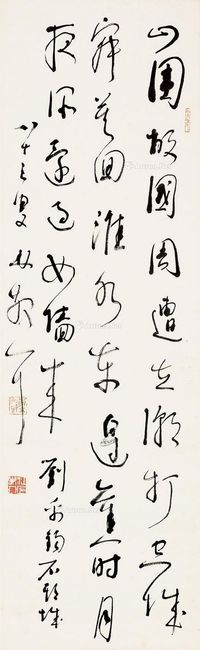 山围故國周遭在潮打空城
寂莫回淮水东邊舊时月
夜深還过女墙来 劉禹锡石头城
八十三叟林散耳